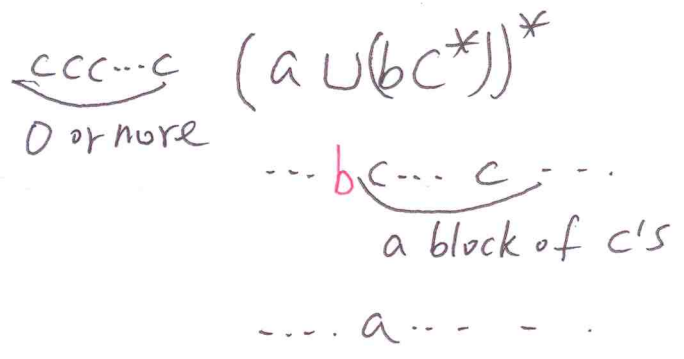 ccc...c (a ∪(bc*))*
0 or more
... bc... c ...
a block of c's
.... a... - .